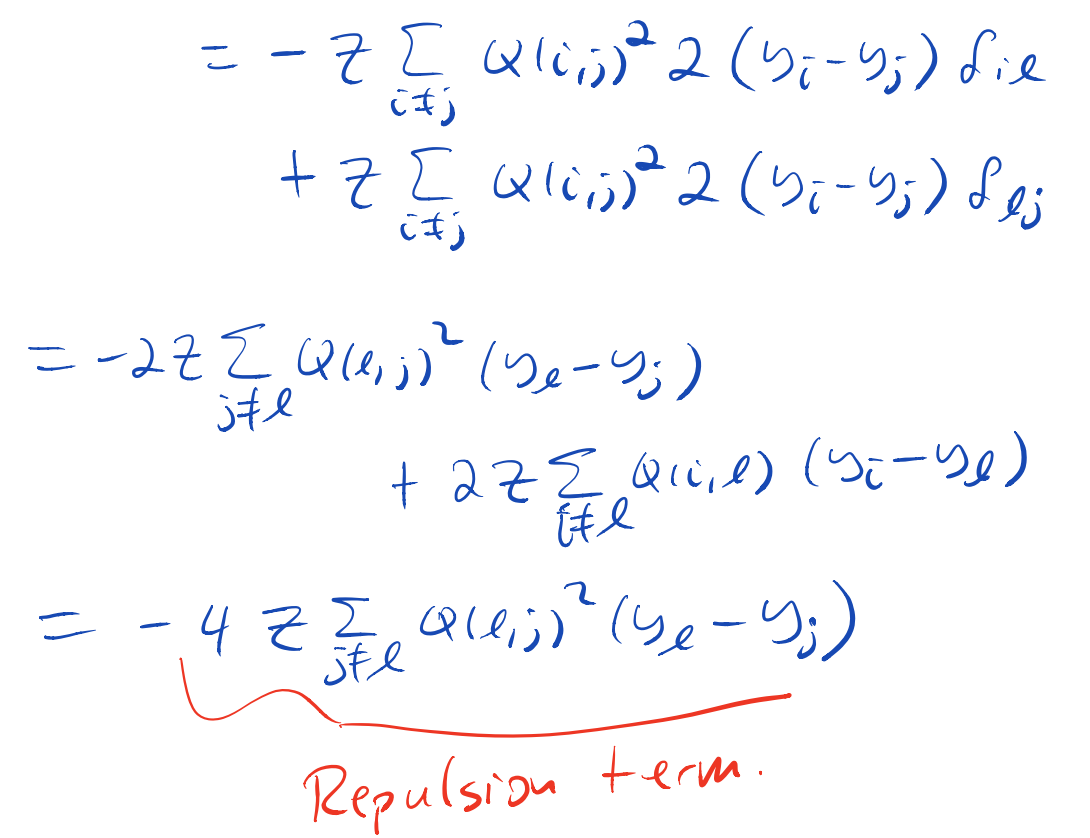 = - Z ∑_{i≠j} Q(i,j)² 2 (y_i - y_j) δ_{iℓ}
+ Z ∑_{i≠j} Q(i,j)² 2 (y_i - y_j) δ_{ℓj}
= -2Z ∑_{j≠ℓ} Q(ℓ,j)² (y_ℓ - y_j)
+ 2Z ∑_{i≠ℓ} Q(i,ℓ) (y_i - y_ℓ)
= - 4 Z ∑_{j≠ℓ} Q(ℓ,j)² (y_ℓ - y_j)
Repulsion term.